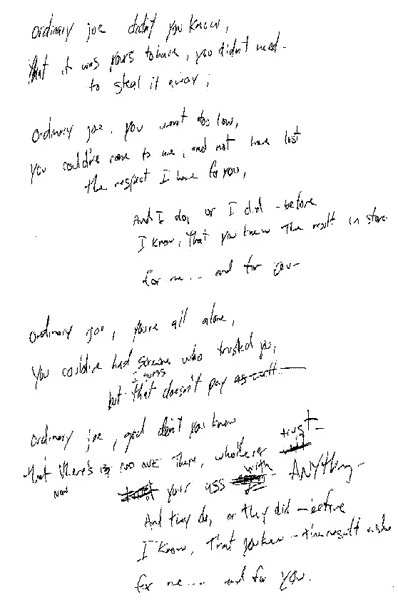 ordinary joe didn't you know,
that it was yours to have, you didn't need
to steal it away;
ordinary joe, you went too low,
you could've come to me, and not have lost
the respect I have for you,
And I do, or I did - before
I know, that you knew the result in store
for me... and for you-
ordinary joe, you're all alone,
you could've had someone who trusted you,
I guess
but that doesn't pay as well
ordinary joe, and don't you know
that there's no one there, who trust
now your ass with ANYthing-
And they do, or they did - before
I know, that you knew - the result
for me.... and for you.